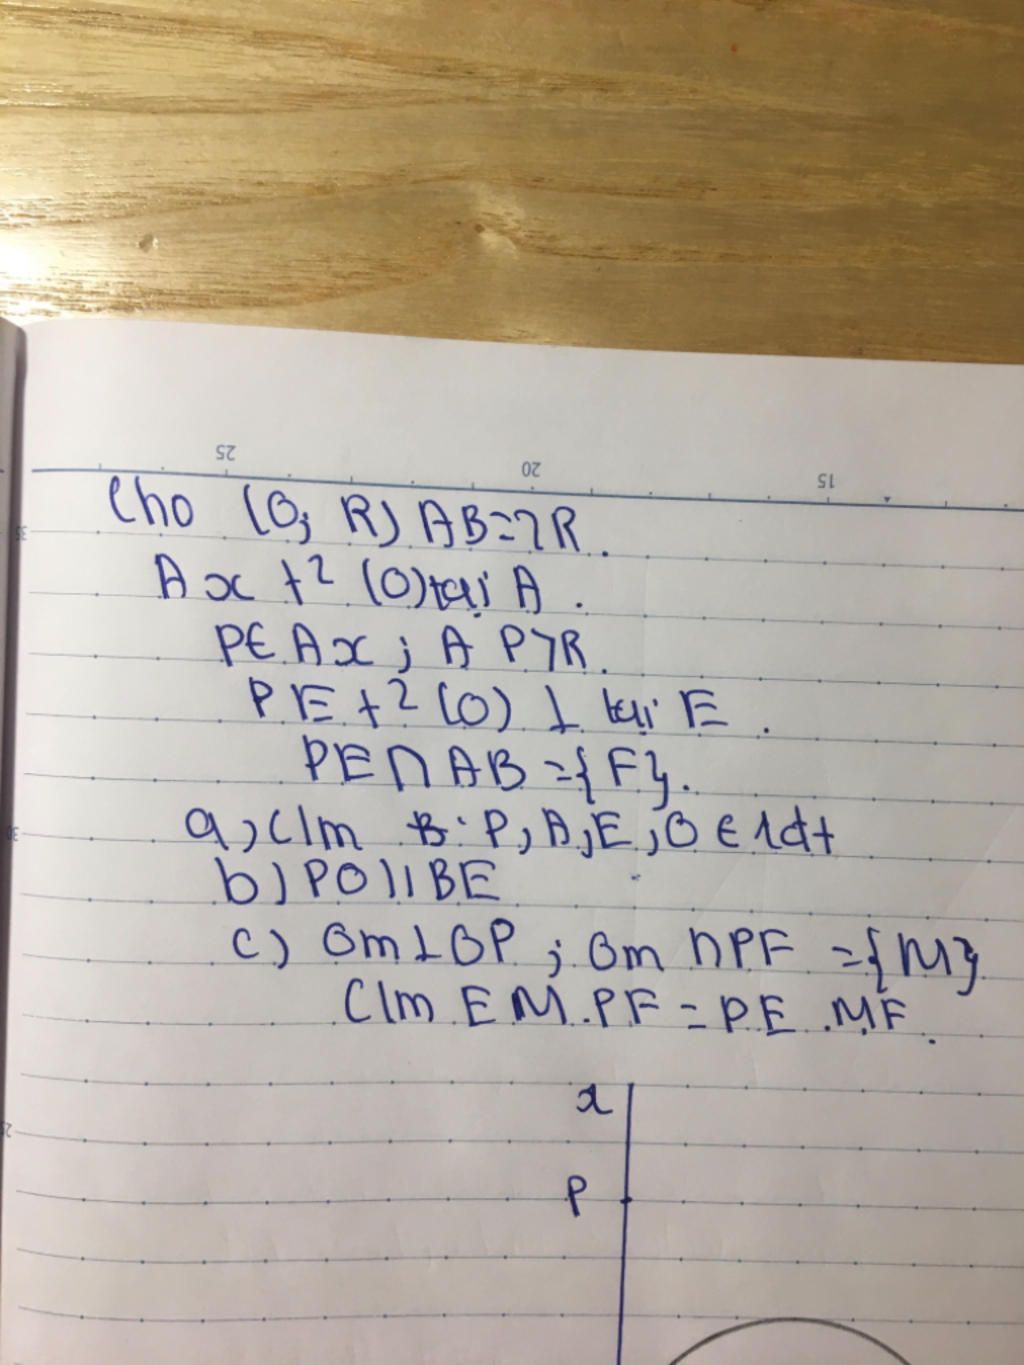 25 20 15
Cho (O; R) AB=2R.
Ax t² (O) tại A.
P∈Ax; AP>R.
PE t² (O) ⊥ tại E.
PE∩AB={F}.
a, C/m B: P, A, E, O ∈ 1đt
b) PO//BE
c) Om⊥OP; Om∩PF={M}
C/m EM.PF=PE.MF.
x
P